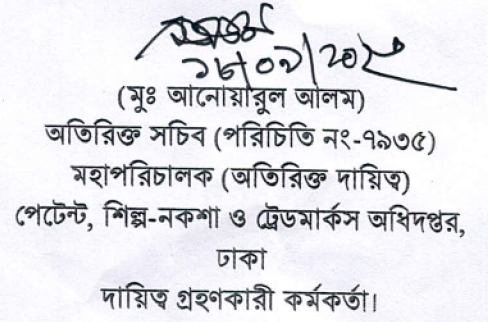 (মুঃ আনোয়ারুল আলম)
অতিরিক্ত সচিব (পরিচিতি নং-৭৯৩৫)
মহাপরিচালক (অতিরিক্ত দায়িত্ব)
পেটেন্ট, শিল্প-নকশা ও ট্রেডমার্কস অধিদপ্তর,
ঢাকা
দায়িত্ব গ্রহণকারী কর্মকর্তা।